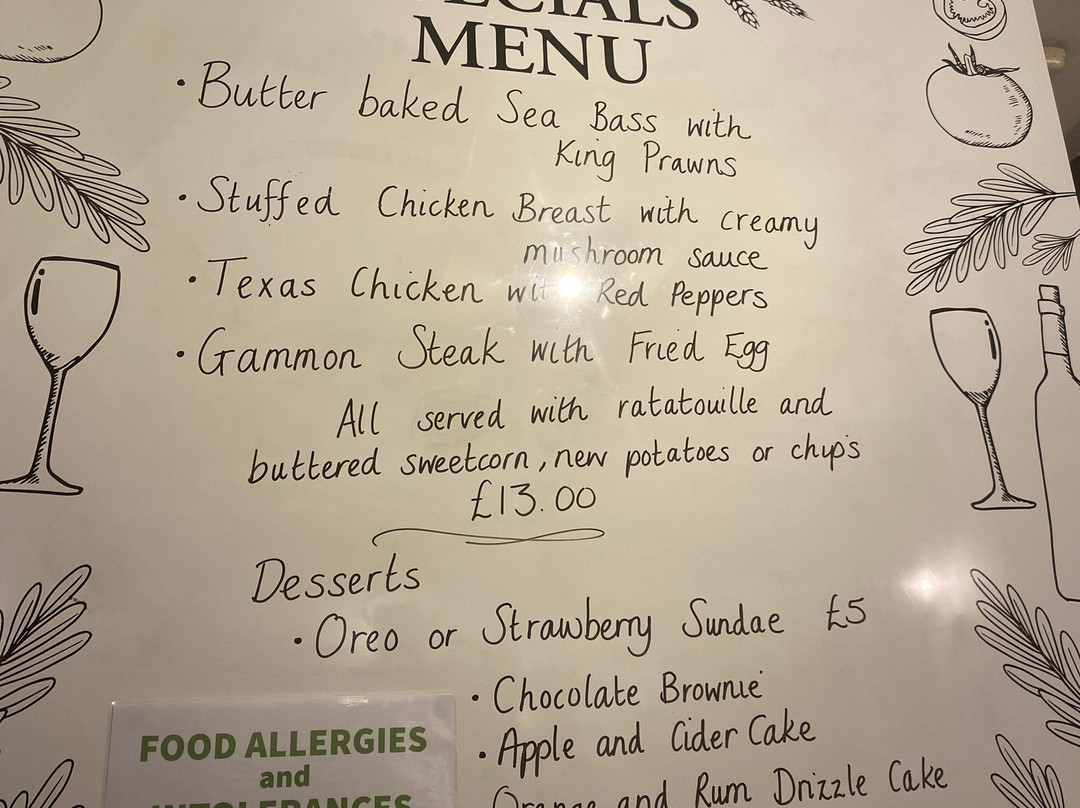 MENU
· Butter baked Sea Bass with
King Prawns
· Stuffed Chicken Breast with creamy
mushroom sauce
· Texas Chicken with Red Peppers
· Gammon Steak with Fried Egg
All served with ratatouille and
buttered sweetcorn, new potatoes or chips
£13.00
Desserts
· Oreo or Strawberry Sundae £5
· Chocolate Brownie
· Apple and Cider Cake
Orange and Rum Drizzle Cake
FOOD ALLERGIES
and
INTOLERANCES